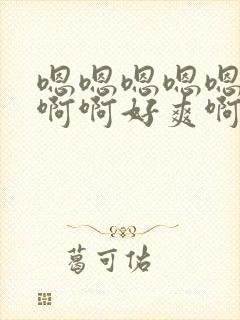 嗯嗯嗯嗯嗯
啊啊好爽啊
葛可估